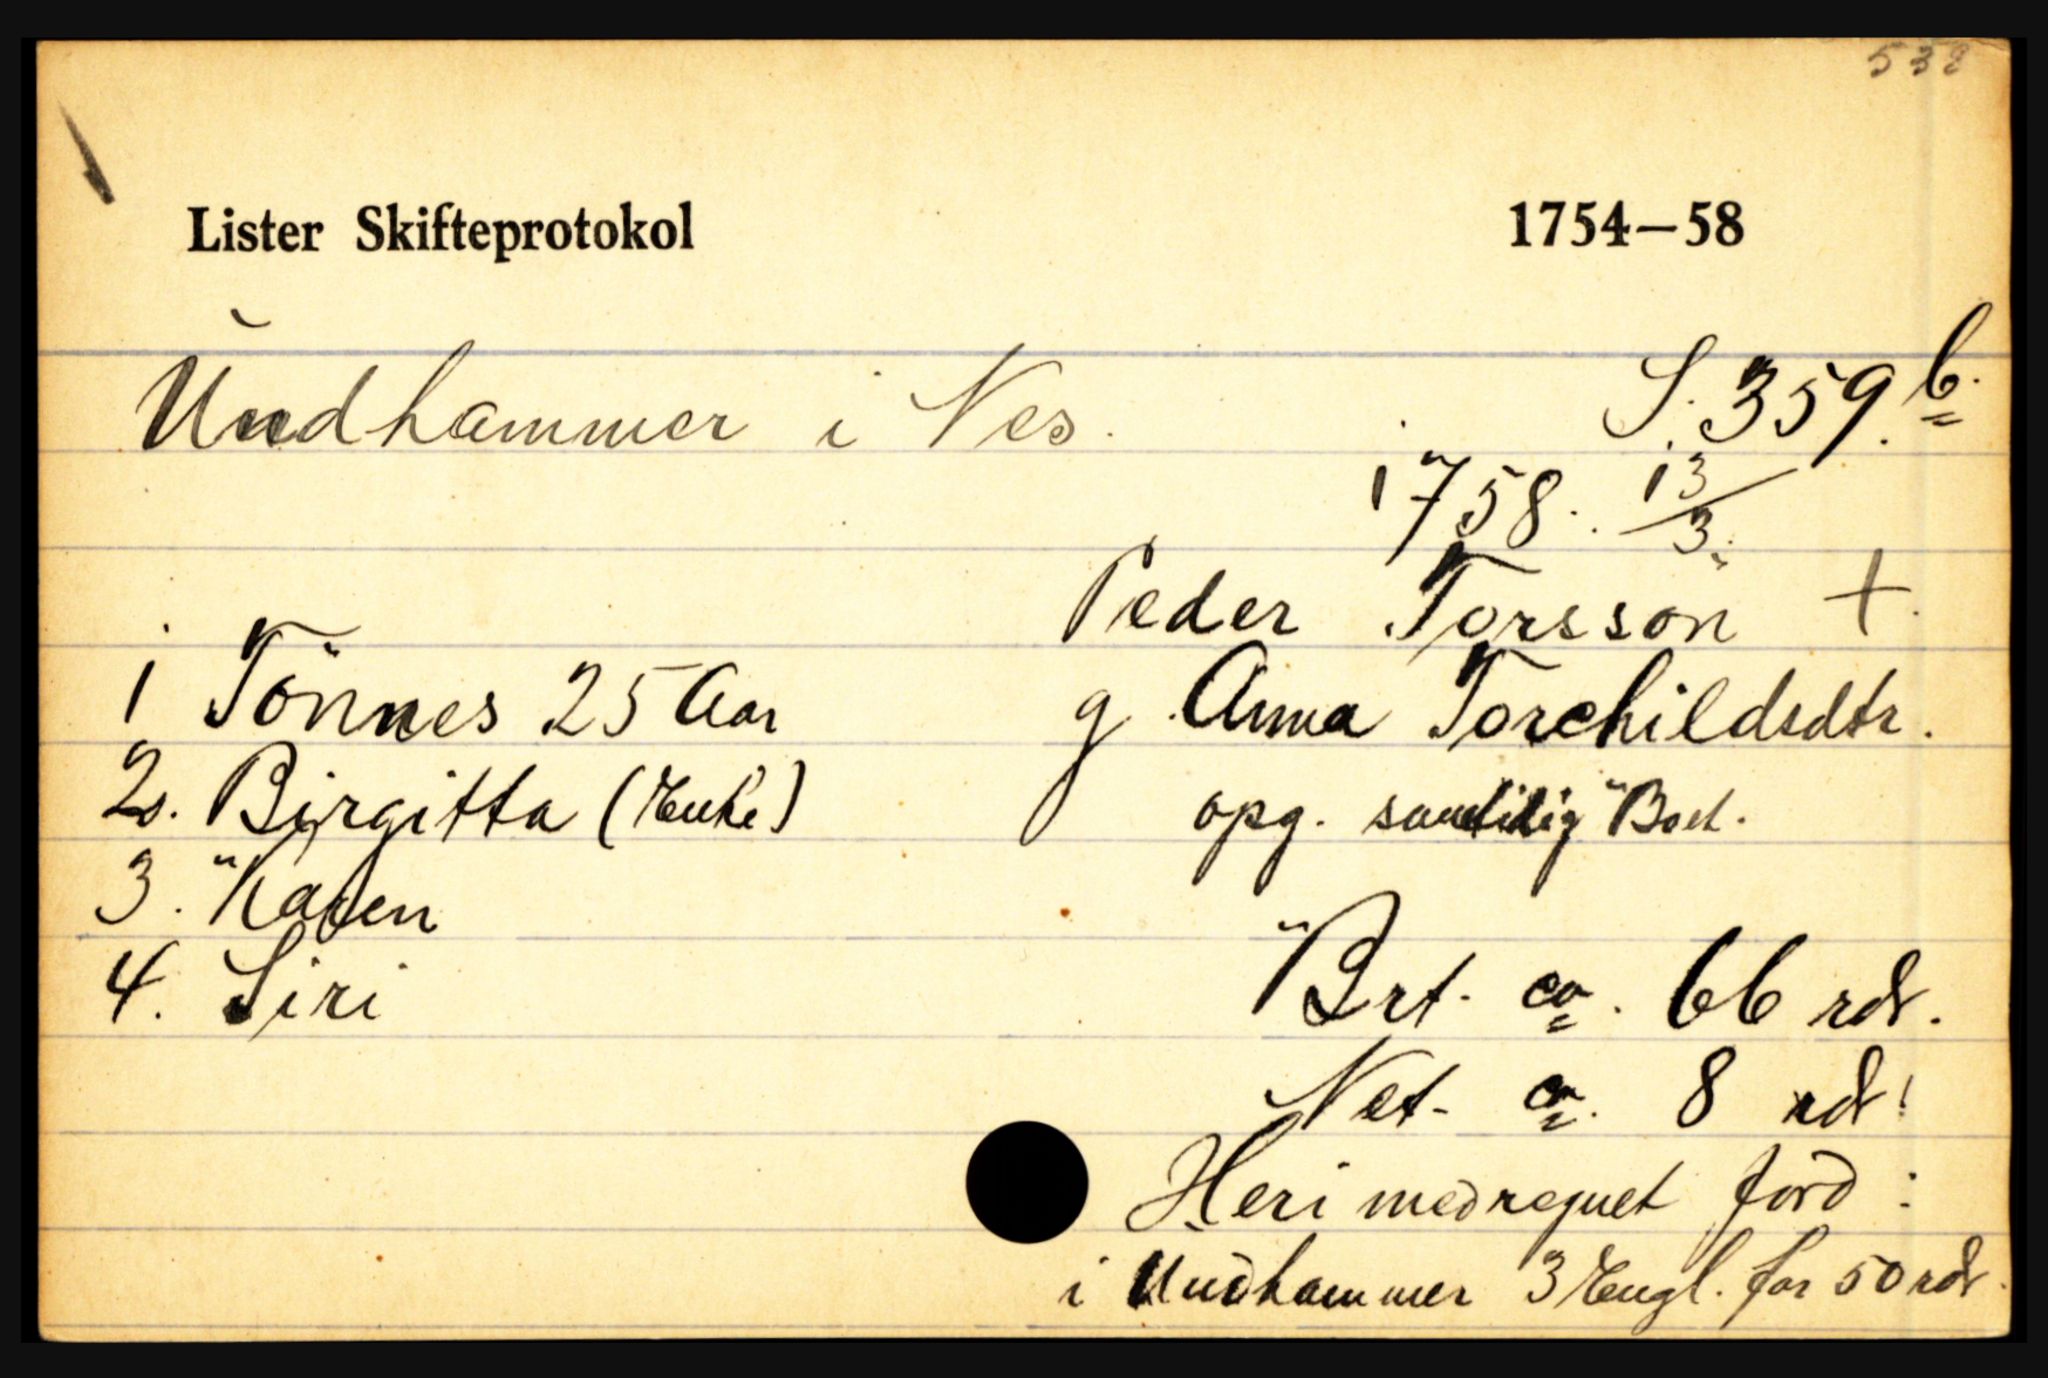 538
Lister Skifteprotokol 1754–58
Undhammer i Nes. S. 359. b.
1758. 13/3.
Peder Torsson +.
1 Tönnes 25 Aar g. Anna Torchildsdtr.
2. Birgitta (Enke) opg. samtidig Boet.
3. Karen
4. Siri Brt. ca. 66 rdr.
Net. ca. 8 rdr!
Heri medregnet Jord:
i Undhammer 3 Engl. for 50 rdr.